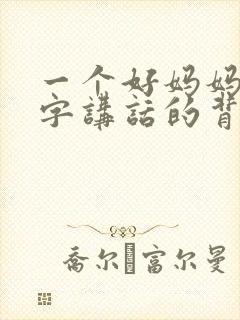 一个好妈妈
字講話的背
喬尔富尔曼